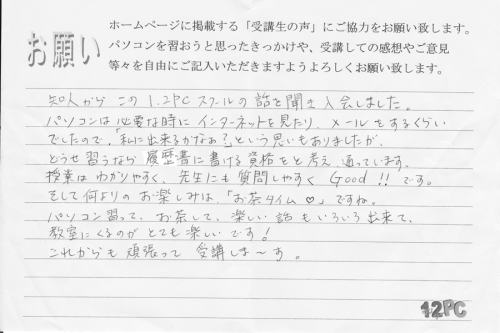 お願い
ホームページに掲載する「受講生の声」にご協力をお願い致します。
パソコンを習おうと思ったきっかけや、受講しての感想やご意見
等々を自由にご記入いただきますようよろしくお願い致します。
知人から この 1.2PC スクールの 話を聞き 入会しました。
パソコンは 必要な時に インターネットを見たり、メールをするくらい
でしたので、「私に出来るかなあ?」という思いもありましたが、
どうせ 習うなら 履歴書に書ける 資格をと考え、通っています。
授業は わかりやすく、先生にも 質問しやすく Good!! です。
そして 何よりの お楽しみは、「お茶タイム♡」ですね。
パソコン習って、お茶して、楽しい 話も いろいろ 出来て、
教室にくるのが とても 楽しい です!
これからも 頑張って 受講しま〜す。
12PC